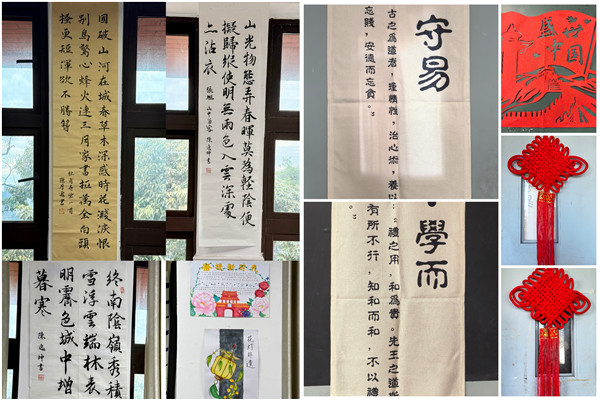 國破山河在城春草木深感時花濺淚恨
別鳥驚心烽火連三月家書抵萬金白頭
搔更短渾欲不勝簪
杜甫春望一首
山光物態弄春暉莫為輕陰便
擬歸縱使明無雨色入雲深處
亦沾衣
張旭 山中留客 陳逸坤書
終南陰嶺秀積
雪浮雲端林表
明霽色城中增
暮寒
陳逸坤書
花灯非遗
守易
古之為道者，理情性，治心術，養以
忘賤，安德而忘貧。”
學而
：“禮之用，和為貴。先王之道斯
有所不行，知和而和，不以禮
盛世中国